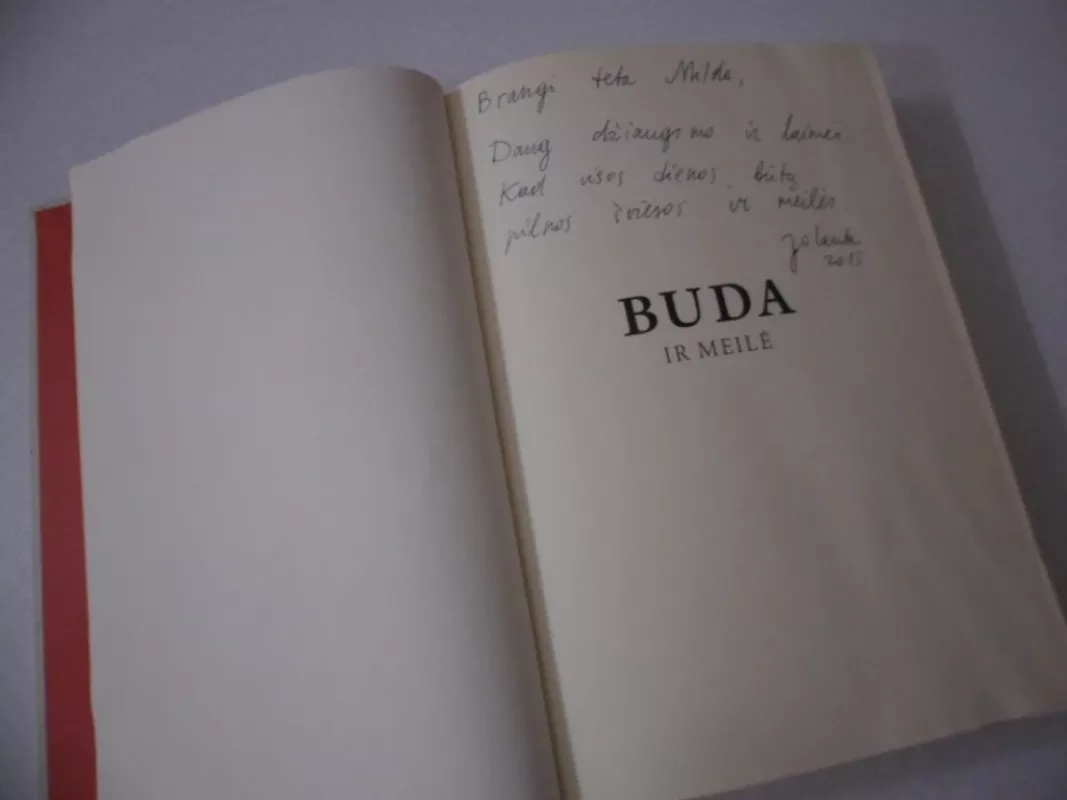 Brangi teta Milda,
Daug džiaugsmo ir laimės.
Kad visos dienos būtų
pilnos šviesos ir meilės.
Jolanta
2015
BUDA
IR MEILĖ